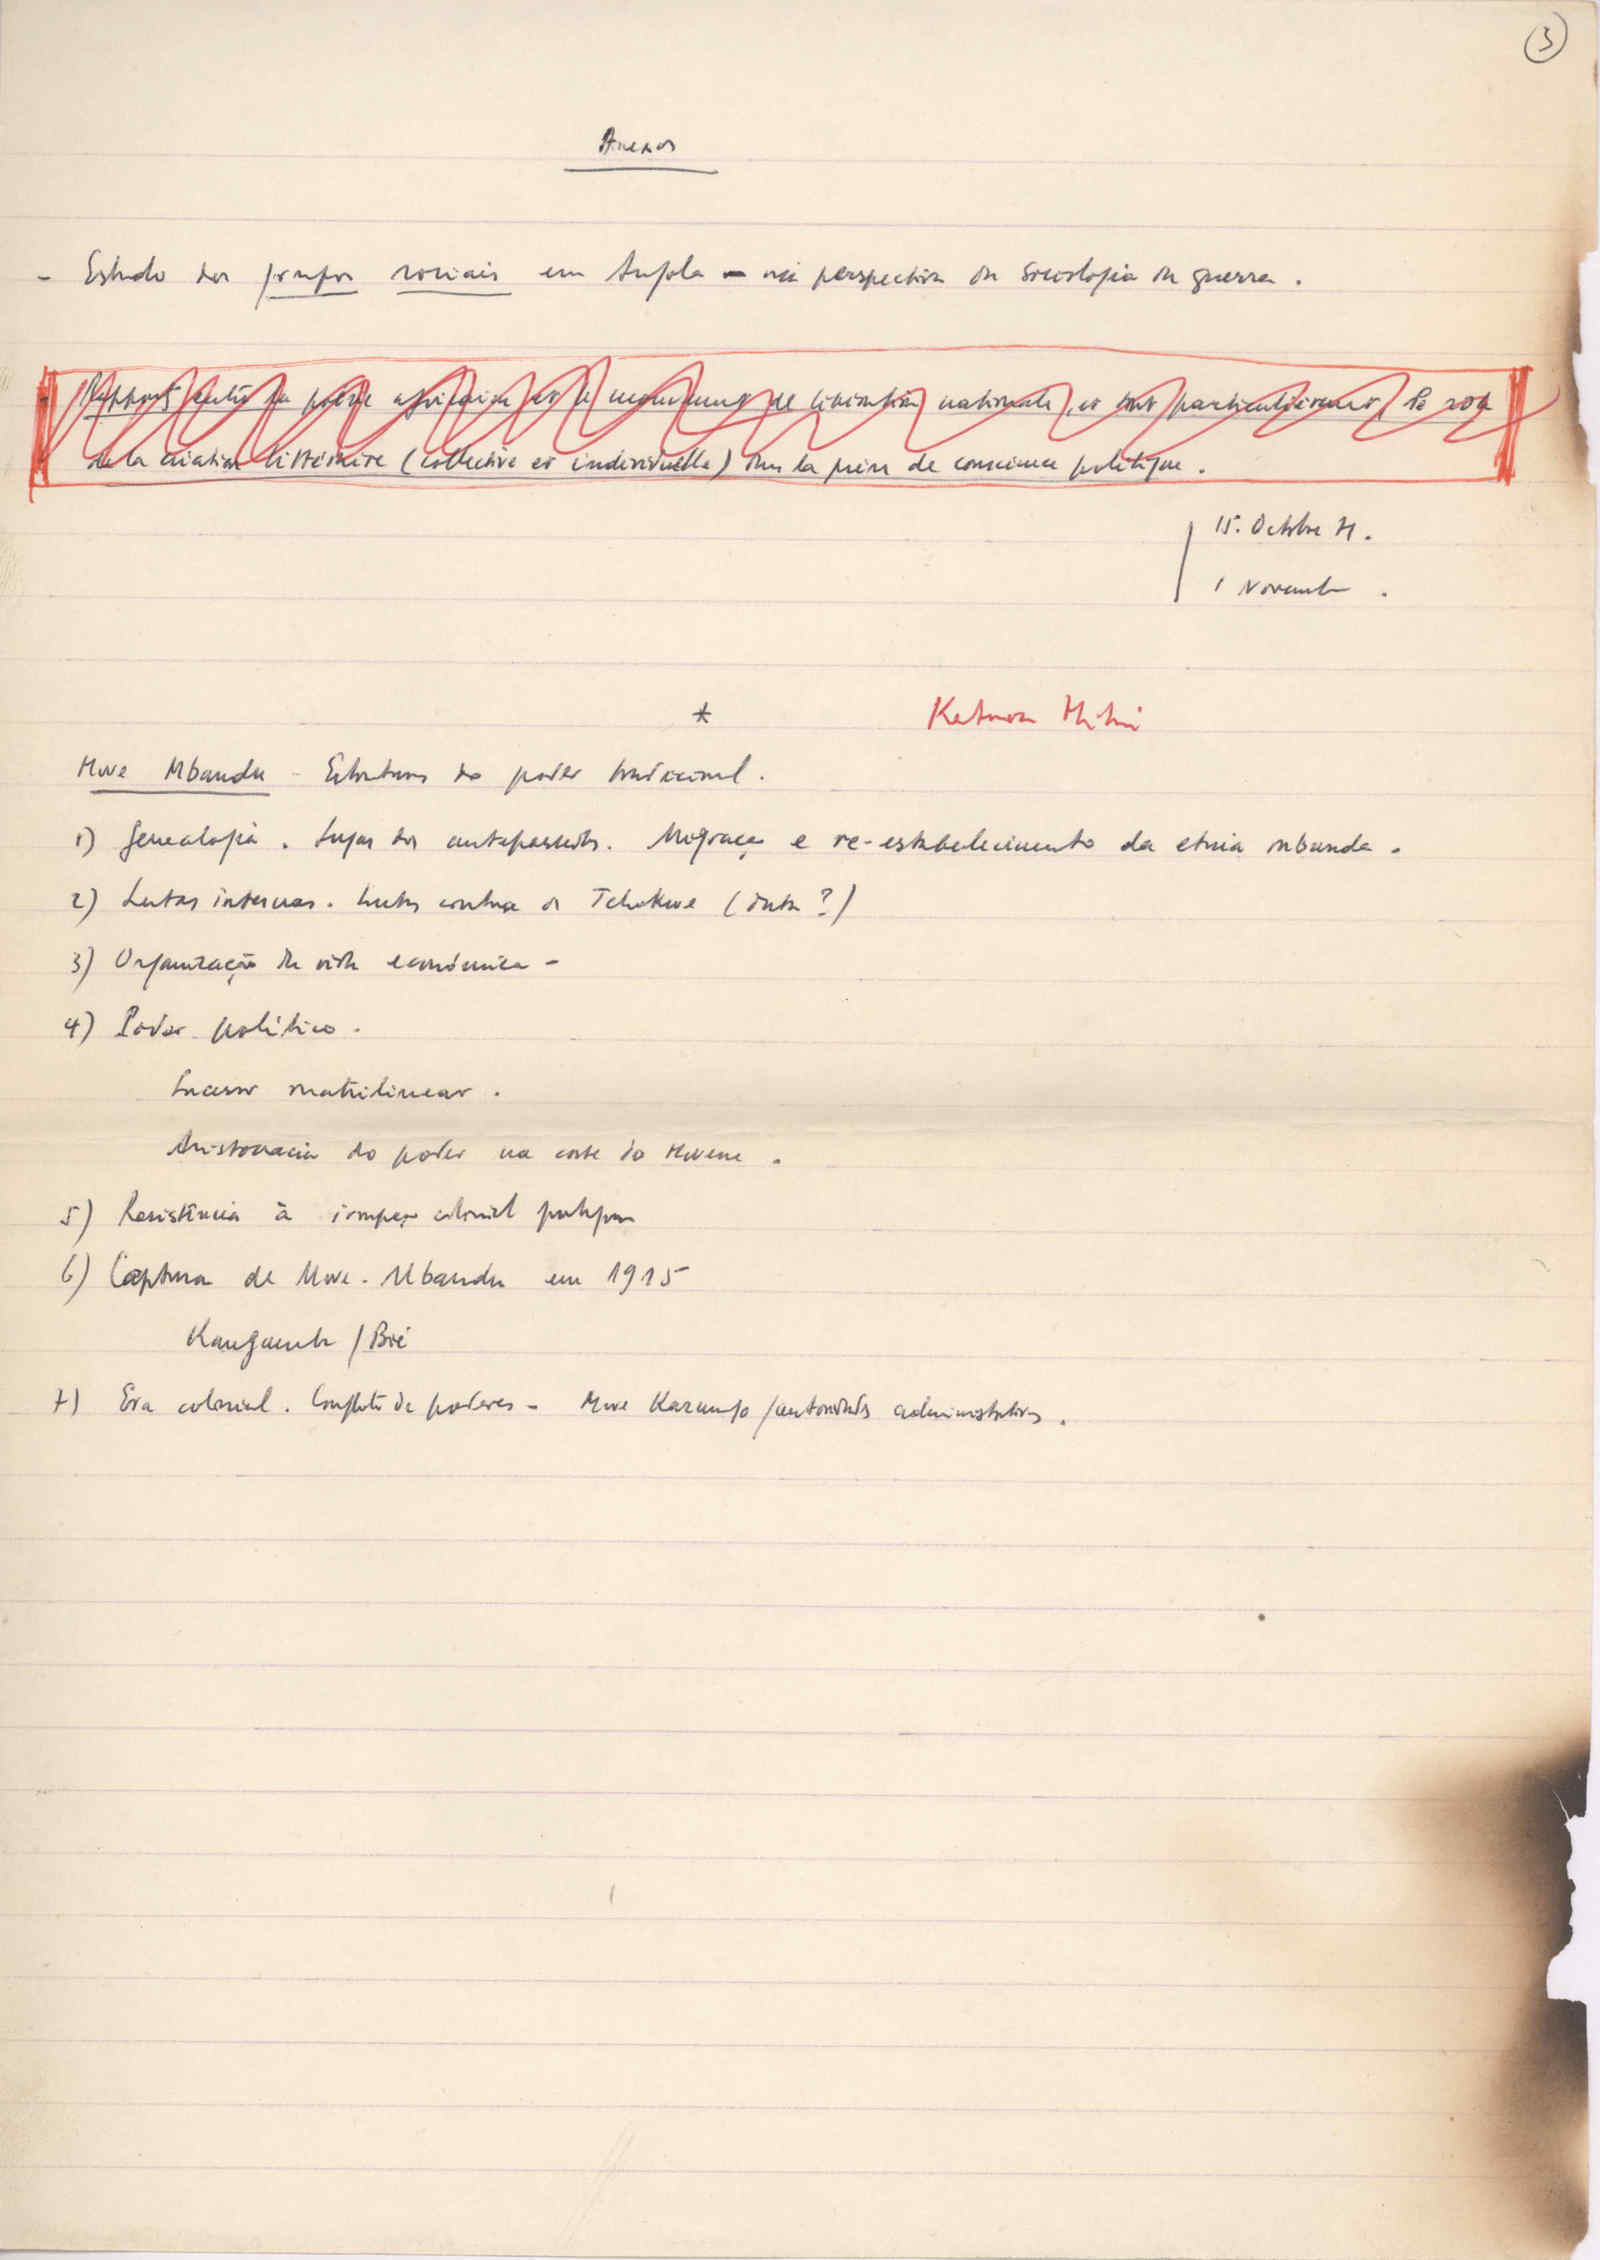 3
Anexos
- Estudo dos grupos sociais em Angola - na perspectiva da sociologia da guerra.
- Rapports entre la poésie africaine et le mouvement de libération nationale, et tout particulièrement, le rôle
de la création littéraire (collective et individuelle) dans la prise de conscience politique.
15. Octobre 71.
1 Novembre .
*
Mwe Mbandu - Estruturas do poder tradicional.
1) Genealogia. Lugar dos antepassados. Migração e re-estabelecimento da etnia mbunda.
2) Lutas internas. Lutas contra os Tchokwe (data ?)
3) Organização da vida económica -
4) Poder político.
Sucessor matrilinear.
Aristocracia do poder na corte do Mwene.
5) Resistência à colonial
6) Captura de Mwe. Mbandu em 1915
Kangamba / Bié
7) Era colonial. Conflito de poderes - Mwe /autoridades administrativas.